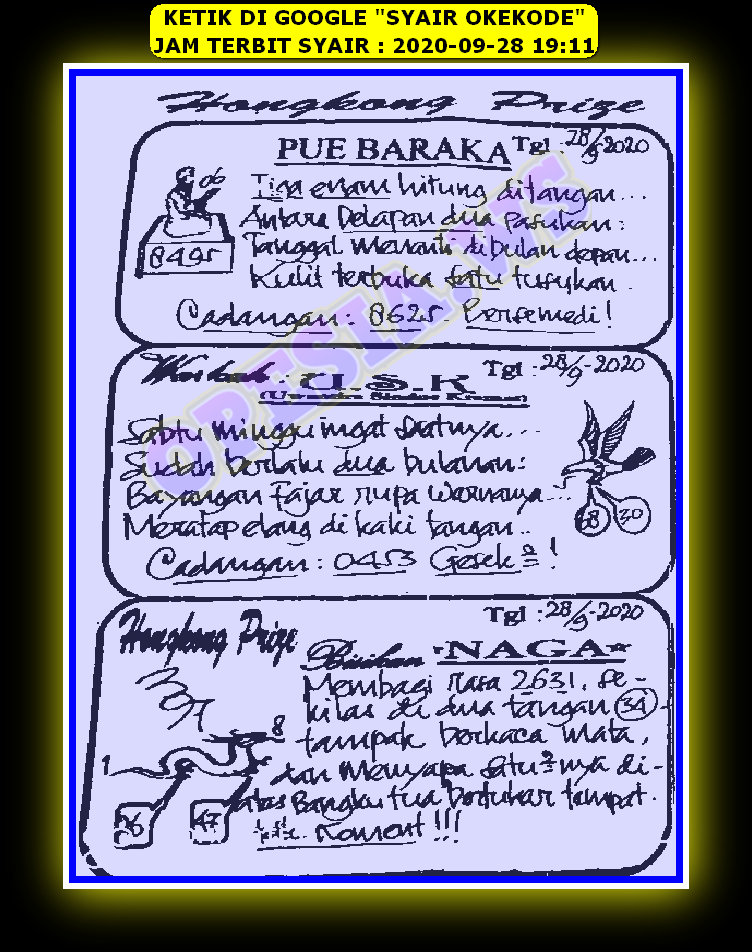 KETIK DI GOOGLE "SYAIR OKEKODE"
JAM TERBIT SYAIR : 2020-09-28 19:11
Hongkong Prize
PUE BARAKA Tgl : 28/9-2020
06
Tiga enam hitung ditangan...
Antara Delapan dua pasukan:
8495
Tanggal menanti dibulan depan...
Kulit terbuka satu tusukan.
Cadangan: 8625. Bersemedi!
OPESIA.WS
U.S.K Tgl : 28/9-2020
Sabtu minggu ingat saatnya...
Sudah berlaku dua bulanan:
Bayangan Fajar rupa warnanya...
68 30
Meratap elang di kaki tangan..
Cadangan: 0453 Gesek2!
Tgl : 28/9-2020
Hongkong Prize
Bisikan "NAGA"
Membagi rasa 2631. se-
kilas di dua tangan 34-
8
tampak berkaca mata,
1
dan menyapa satu2nya di-
atas Bangku tua bertukar tempat.
76 47
Koment!!!